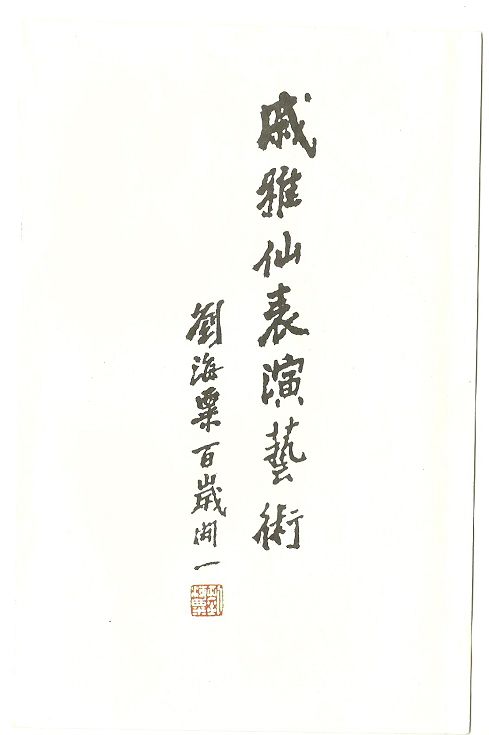 戚雅仙表演藝術
劉海粟百歲開一